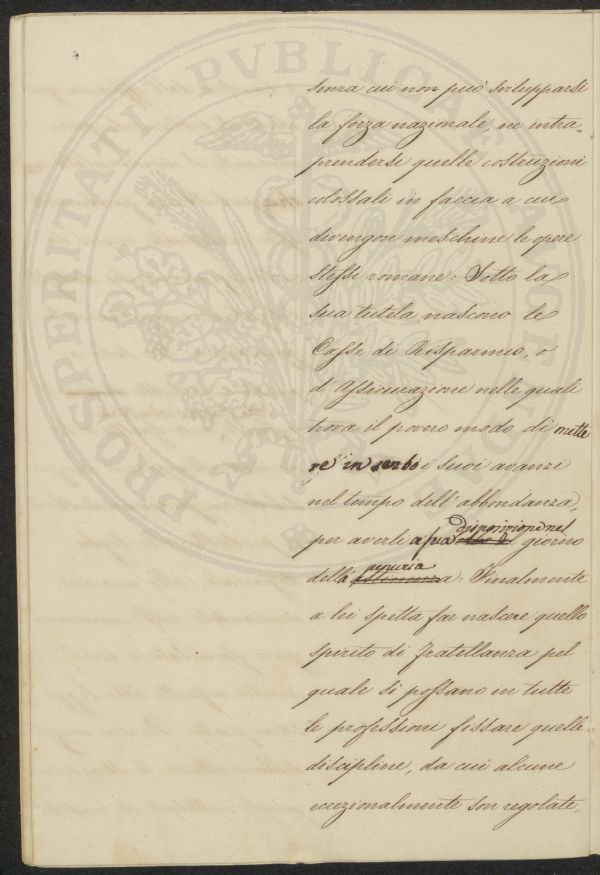 senza cui non può svilupparsi
la forza nazionale, ne intra-
prendersi quelle costruzioni
colossali in faccia a cui
divengon meschine le opere
stesse romane: Sotto la
sua tutela nascono le
Casse di Risparmio, o
d'Assicurazione nelle quali
trova il povero modo di mette
re in serbo i suoi avanzi
nel tempo dell'abbondanza,
per averli a sua disposizione nel giorno
della penuria. Finalmente
a lei spetta far nascere quello
spirito di Fratellanza pel
quale si possano in tutte
le professioni fissare quelle
discipline, da cui alcune
eccezionalmente son regolate.
PROSPERITATI PVBLICAE AVGENDAE